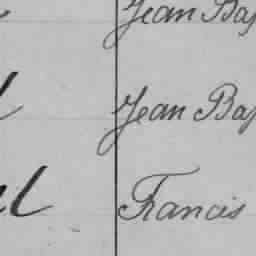 Jean Bap
Jean Bap
Francis